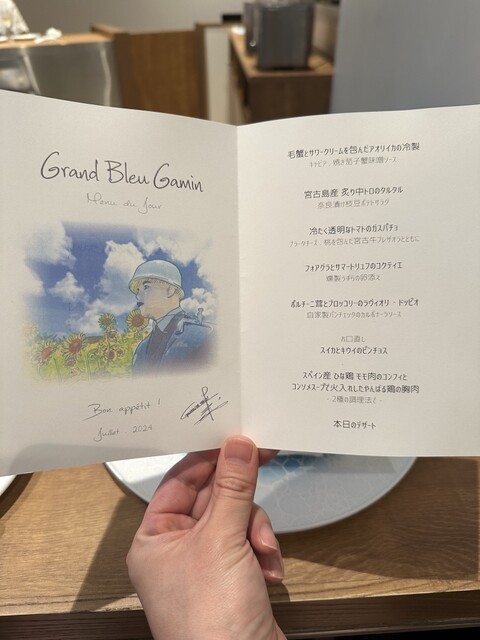 Grand Bleu Gamin
Menu du Jour
Bon appétit !
Juillet 2024
毛蟹とサワークリームを包んだアオリイカの冷製
キャビア 焼き茄子蟹味噌ソース
宮古島産 炙り中トロのタルタル
奈良漬け枝豆ポテトサラダ
冷たく透明なトマトのガスパチョ
ブラータチーズ 桃を包んだ宮古牛ブレザオラとともに
フォアグラとサマートリュフのコクティエ
燻製うずらの卵添え
ポルチーニ茸とブロッコリーのラヴィオリ・ドッピオ
自家製パンチェッタのカルボナーラソース
お口直し
スイカとキウイのピンチョス
スペイン産 ひな鶏 モモ肉のコンフィと
コンソメスープで火入れしたやんばる鶏の胸肉
- 2種の調理法で -
本日のデザート